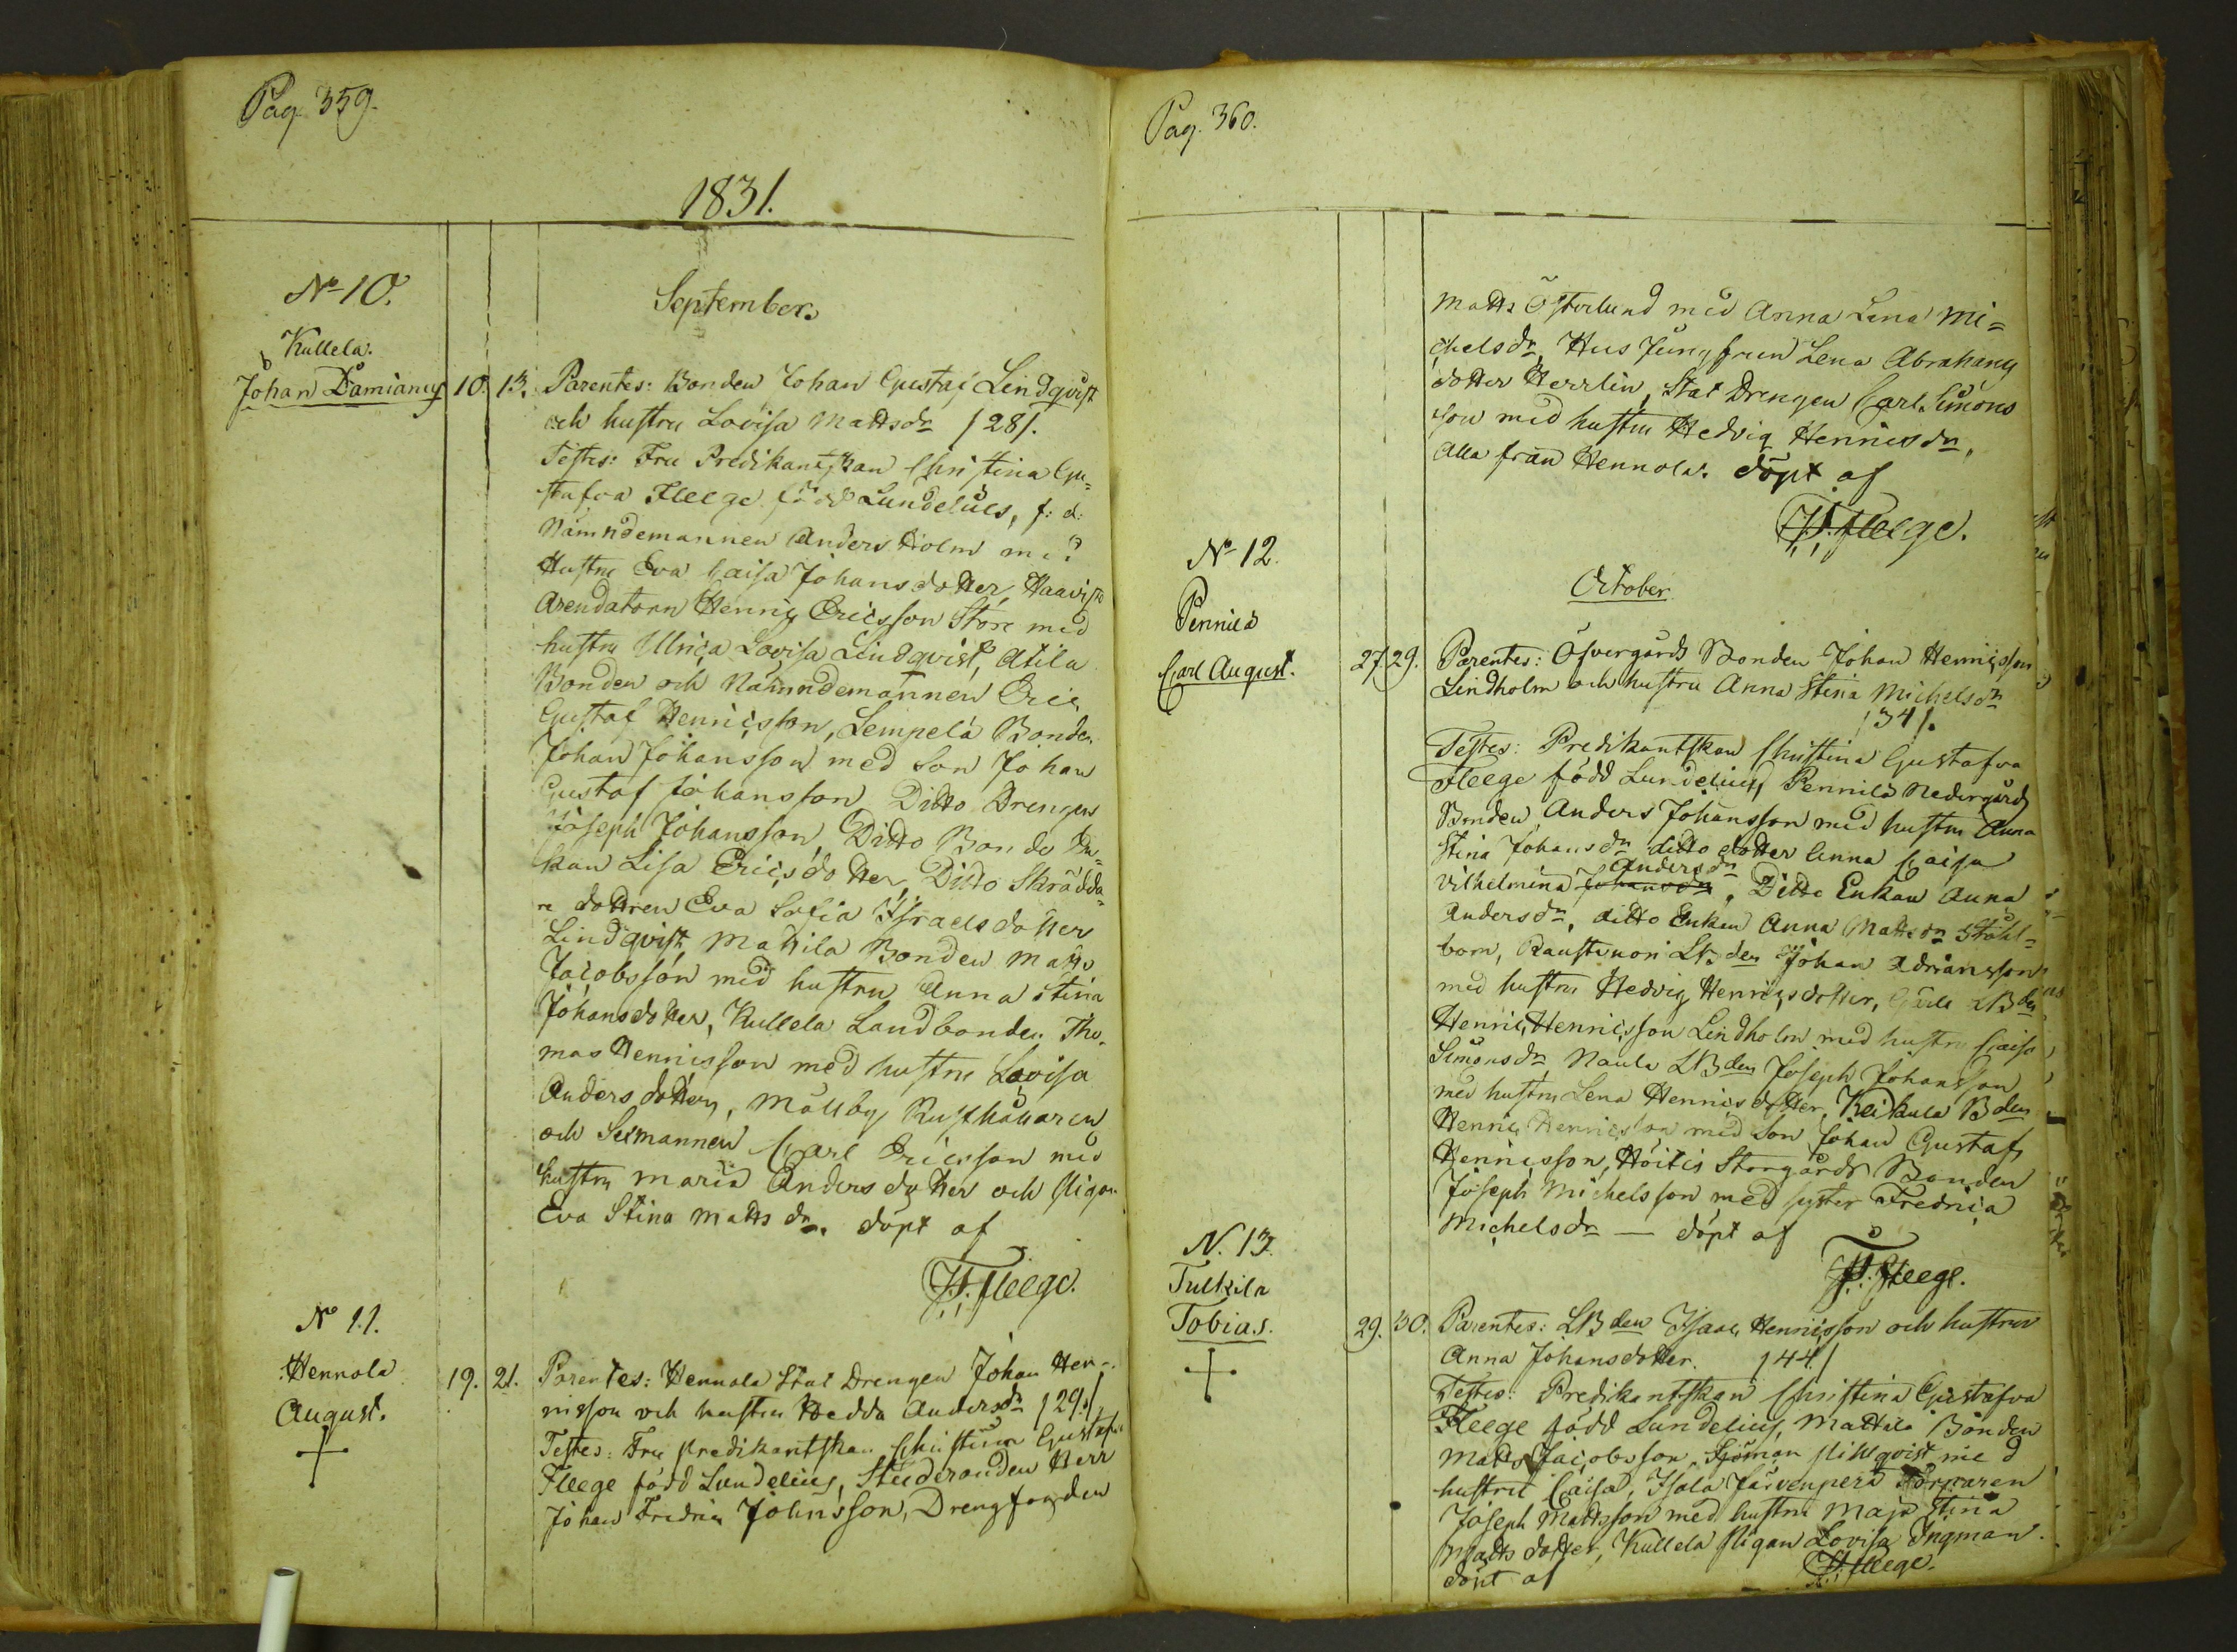 Pag. 359.
1831.
No 10.
September.
Kullela.
Johan Damianus 10. 13. Parentes: Bonden Johan Gustaf Lindqvist
och hustru Lovisa Mattsdr /28/.
Testes: Fru Predikantskan Christina Gu=
stafva Fleege född Lundelius, f: d:
Nämndemannen Anders Holm med
Hustru Eva Caisa Johansdotter, Haavisto
Arendatorn Henric Ericsson Store med
hustru Ulrica Lovisa Lindqvist, Atila
Bonden och Nämndemannen Eric
Gustaf Henricsson, Lempelä Bonden
Johan Johansson med Son Johan
Gustaf Johansson Ditto Drengen
Joseph Johansson, Ditto Bonde En=
kan Lisa Ericsdotter, Ditto Skrädda=
re dottren Eva Sofia Israelsdotter
Lindqvist, Mattila Bonden Matts
Jacobsson med hustru Anna Stina
Johansdotter, Kullela Landbonden Tho=
mas Henricsson med hustru Lovisa
Andersdotter, Mållby Rusthållaren
och Sexmannen Carl Ericsson med
hustru Maria Andersdotter och Pigan
Eva Stina Mattsdr. döpt af
F. Fleege.
No 11.
Hennola
August. 19. 21. Parentes: Hennola Stat Drengen Johan Hen-
ricsson och hustru Hedda Andersdr /29./
Testes: Fru Predikantskan Christina Gustafva
Fleege född Lundelius, Studeranden Herr
Johan Fredric Johnsson, Drengfogden
Pag. 360.
Matts Österlund med Anna Lena Mi=
chelsdr, Hus Jungfrun Lena Abrahams
dotter Herrlin, Stat Drengen Carl Simons
son med hustru Hedvig Henricsdr,
alla från Hennola. döpt af
F. Fleege.
No 12.
October.
Pennilä
Carl August. 27. 29. Parentes: Öfvergårds Bonden Johan Henricsson
Lindholm och hustru Anna Stina Michelsdr
/34/.
Testes: Predikantskan Christina Gustafva
Fleege född Lundelius, Pennilä Nedergårds
Bonden Anders Johansson med hustru Anna
Stina Johansdr ditto dotter Anna Caisa
Andersdr
Vilhelmina Johansdr, Ditto Enkan Anna
Andersdr, ditto Enkan Anna Mattsdr Ståhl=
bom, LBden Johan Adriansson
med hustru Hedvig Henricsdotter, LBden
Henric Henricsson Lindholm med hustru Caisa
Simonsdr Naula LBden Joseph Johansson
med hustru Lena Henricsdotter, Keikula Bden
Henric Henricsson med Son Johan Gustaf
Henricsson, Höitis Storgårds Bonden
Joseph Michelsson med syster Fredrica
Michelsdr — döpt af
F. Fleege.
N. 13.
Tulkila
Tobias. 29. 30. Parentes: LBden Isaac Henricsson och hustru
Anna Johansdotter. /44/
Testes: Predikantskan Christina Gustafva
Fleege född Lundelius, Mattila Bonden
Matts Jacobsson, Sjöman med
hustru Caisa, Isola Järvenperä Torparen
Joseph Mattsson med hustru Maja Stina
Mattsdotter, Kullela Pigan Lovisa Ingman.
döpt af F. Fleege.